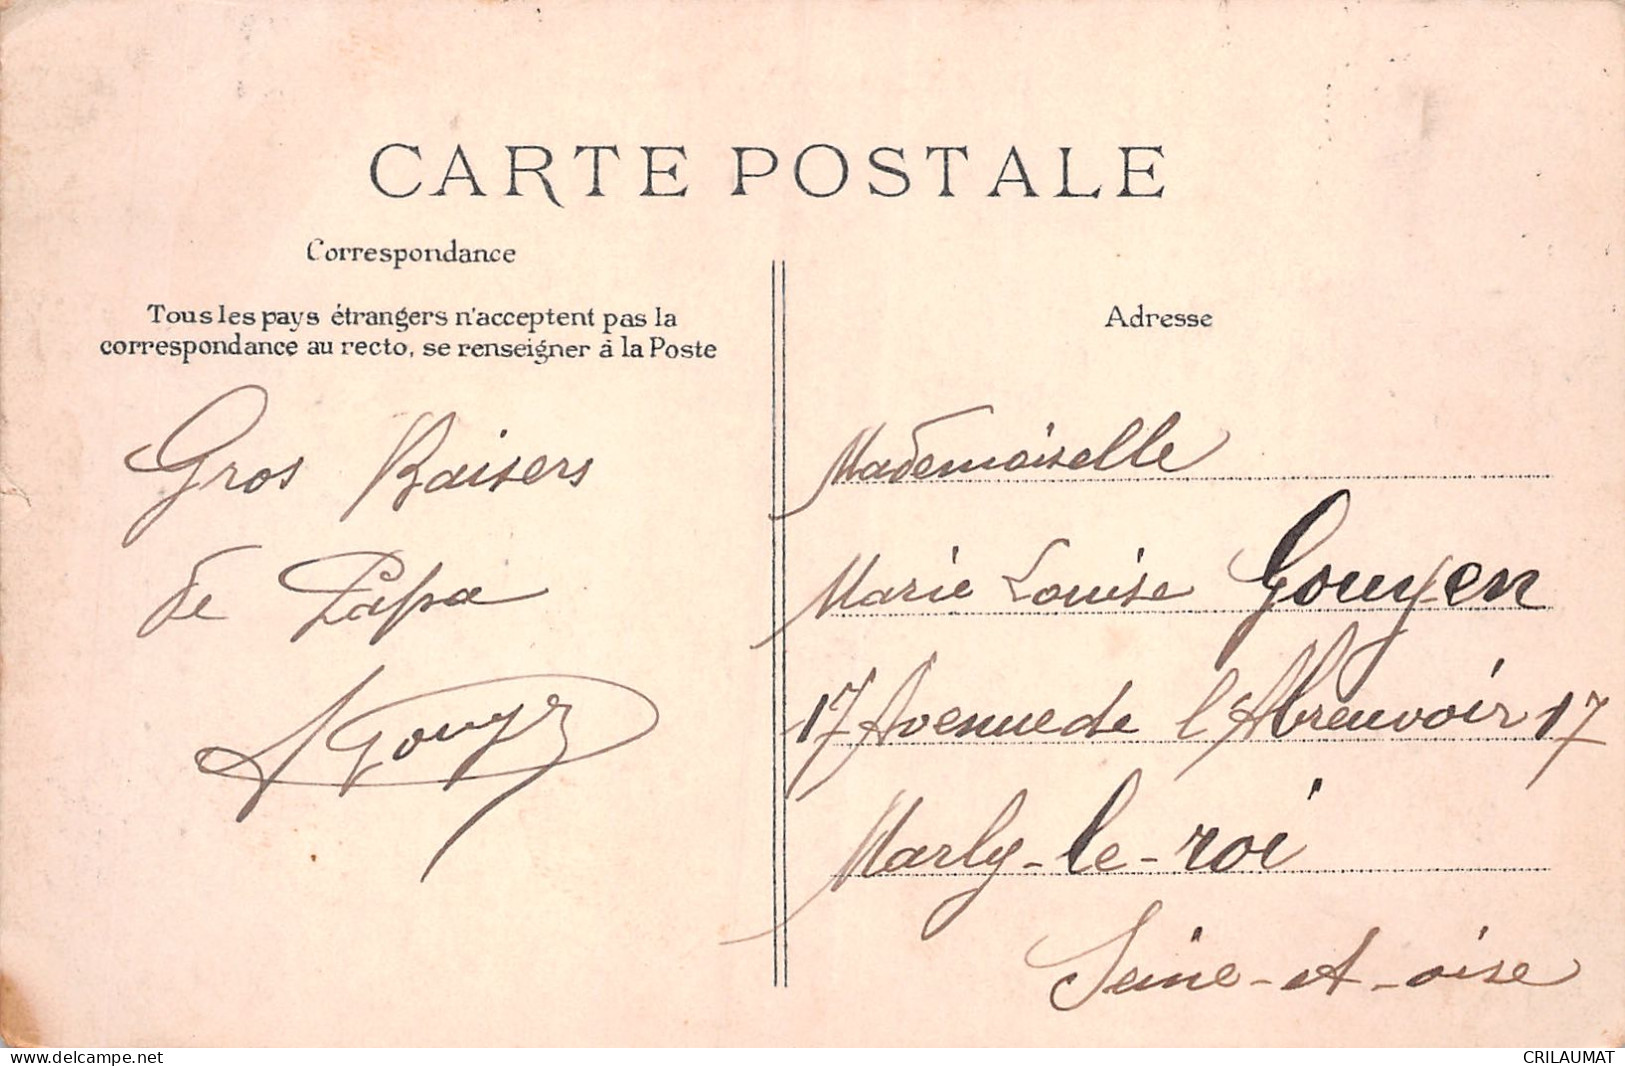 CARTE POSTALE
Correspondance
Tous les pays étrangers n'acceptent pas la
correspondance au recto, se renseigner à la Poste
Gros Baisers
de Papa
Gouyen
Adresse
Mademoiselle
Marie Louise Gouyen
17 Avenue de l'Abreuvoir 17
Marly-le-roi
Seine-et-oise
https://www.delcampe.net
CRILAUMAT